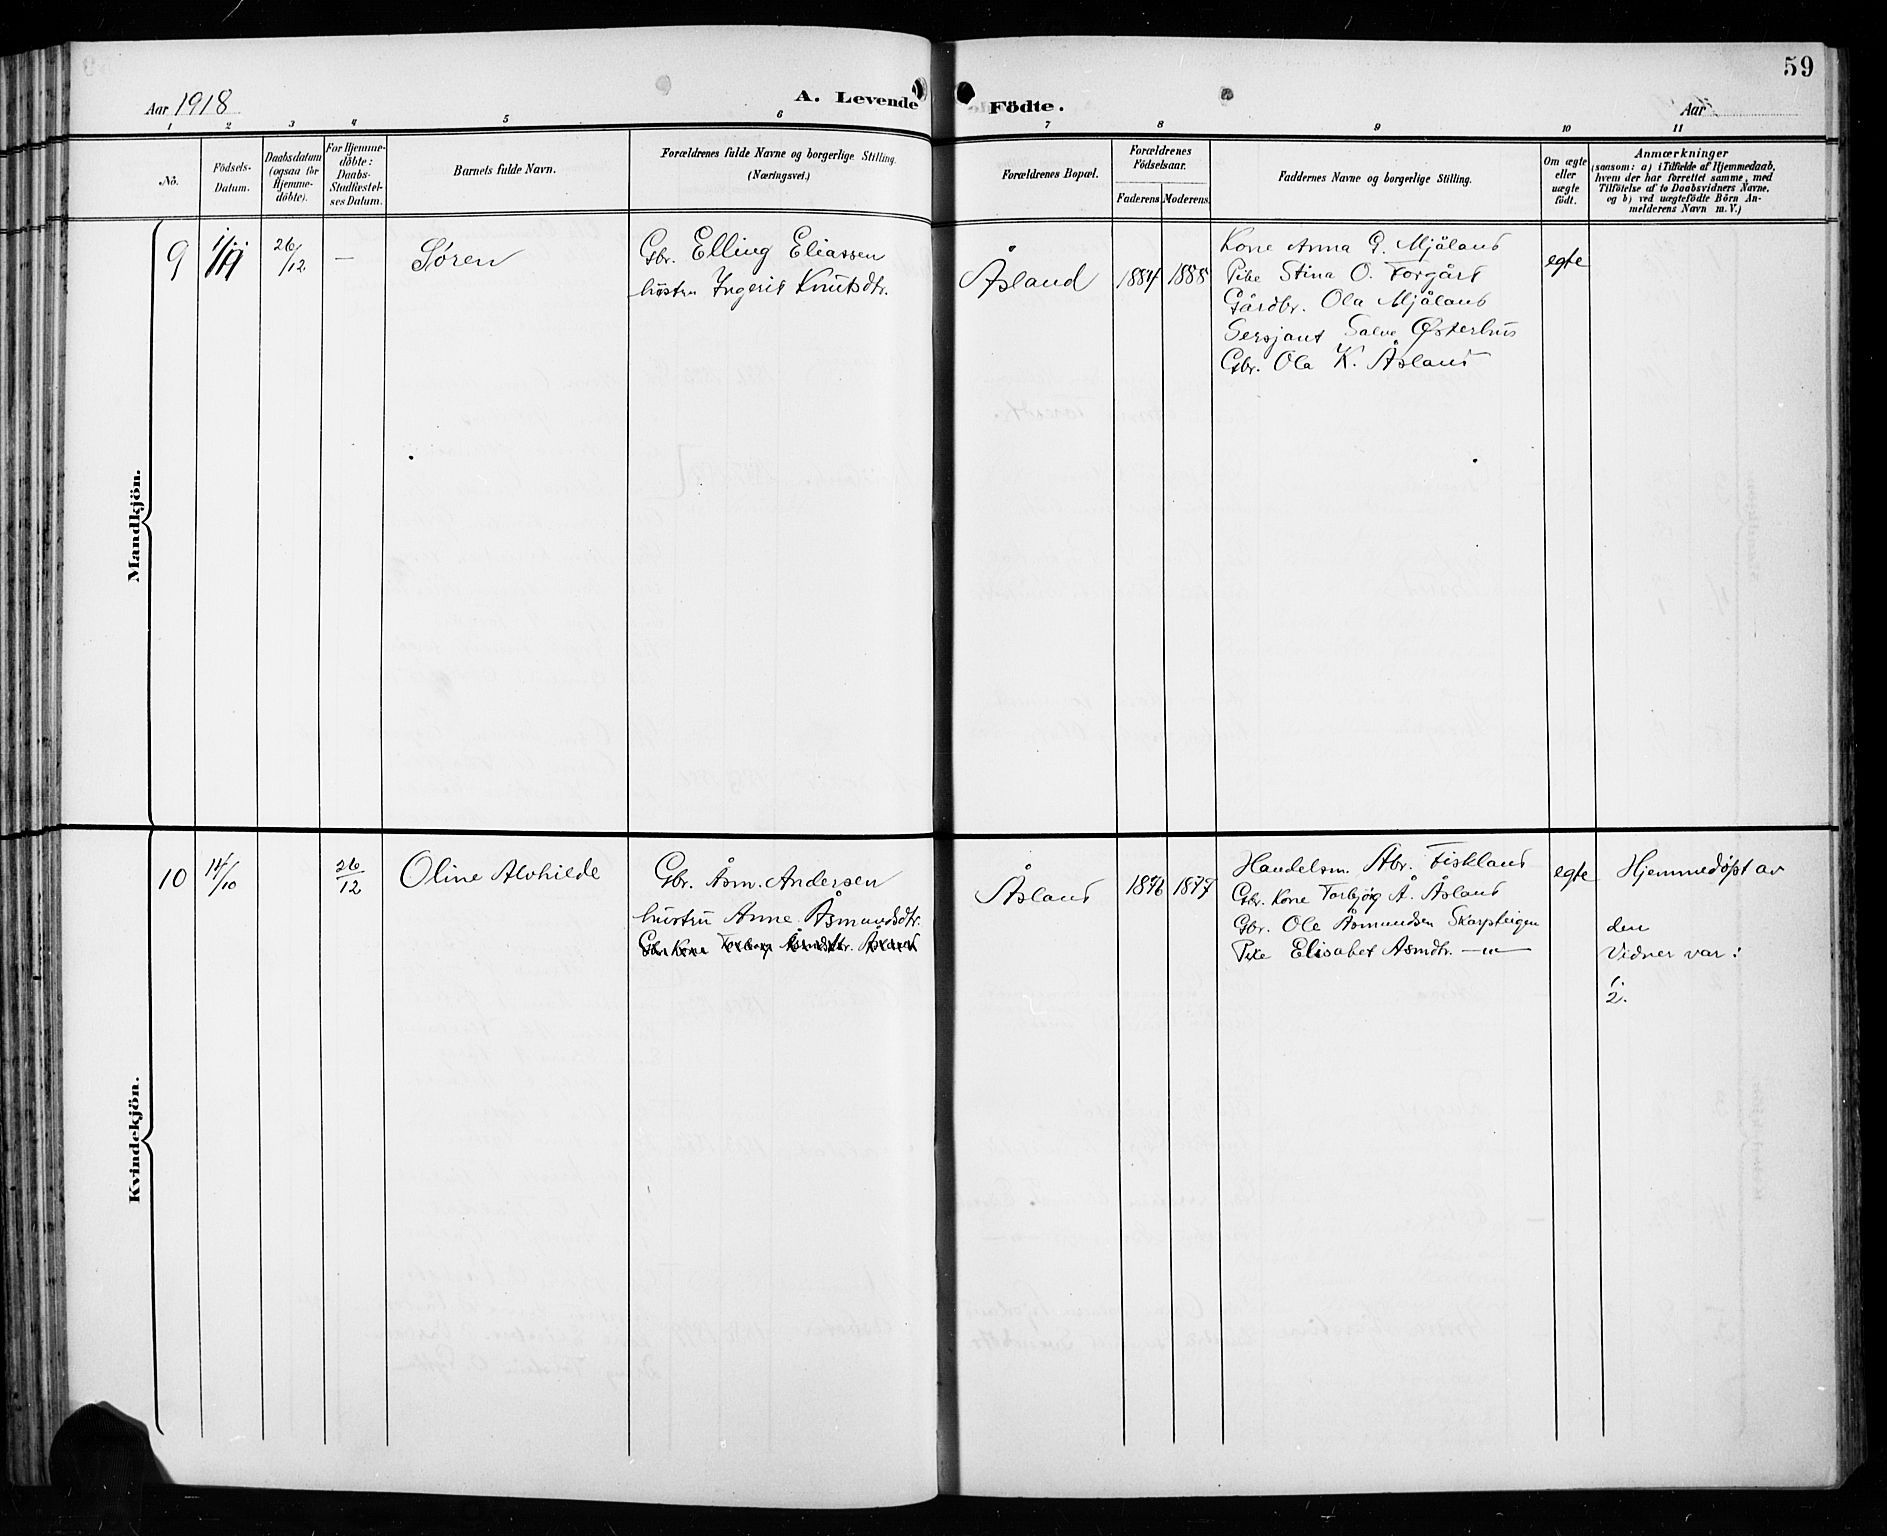 59
Aar 1918
A. Levende Födte.
Aar
1 2 3 4 5 6 7 8 9 10 11
No.
Födsels-
Datum.
Daabsdatum
(ogsaa for
Hjemme-
döbte).
For Hjemme-
döbte:
Daabs-
Stadfæstel-
ses Datum.
Barnets fulde Navn.
Forældrenes fulde Navne og borgerlige Stilling.
(Næringsvei.)
Forældrenes Bopæl.
Forældrenes
Födselsaar.
Faderens Moderens.
Faddernes Navne og borgerlige Stilling.
Om ægte
eller
uægte
födt.
Anmærkninger
(saasom: a) i Tilfælde af Hjemmedaab,
hvem der har forrettet samme, med
Tilföielse af to Daabsvidners Navne,
og b) ved uægtefödte Börn An-
melderens Navn m. V.)
Mandkjön.
9
26/12
—
Søren
Gbr. Elling Eliassen
hustru Ingerit Knutsdtr.
Åsland
1884 1888
Kone Anna G. Mjåland
Pike Stina O. Forgård
Gårdbr. Ola Mjåland
Sersjant Salve Østerhus
Gbr. Ola K. Åsland
egte
Kvindekjön.
10
14/10
26/12
Oline Alvhilde
Gbr. Åsm. Andersen
hustru Anne Åsmundsdtr.
Gbr. Kone Torborg Åsmdtr. Åsland
Åsland
1876 1877
Handelsm. Abr. Fiskland
Gbr. Kone Torbjørg A. Åsland
Gbr. Ole Åsmundsen Skarpteigen
Pike Elisabet Åsmdtr. —"—
egte
Hjemmedøpt av
den
Vidner var:
1.
2.